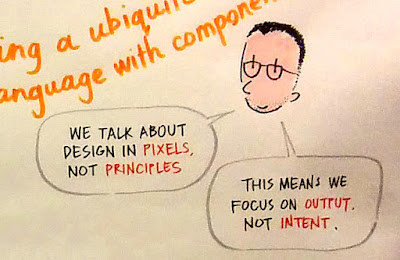 ing a ubiquit
anguage with componen
WE TALK ABOUT
DESIGN IN PIXELS,
NOT PRINCIPLES
THIS MEANS WE
FOCUS ON OUTPUT.
NOT INTENT.